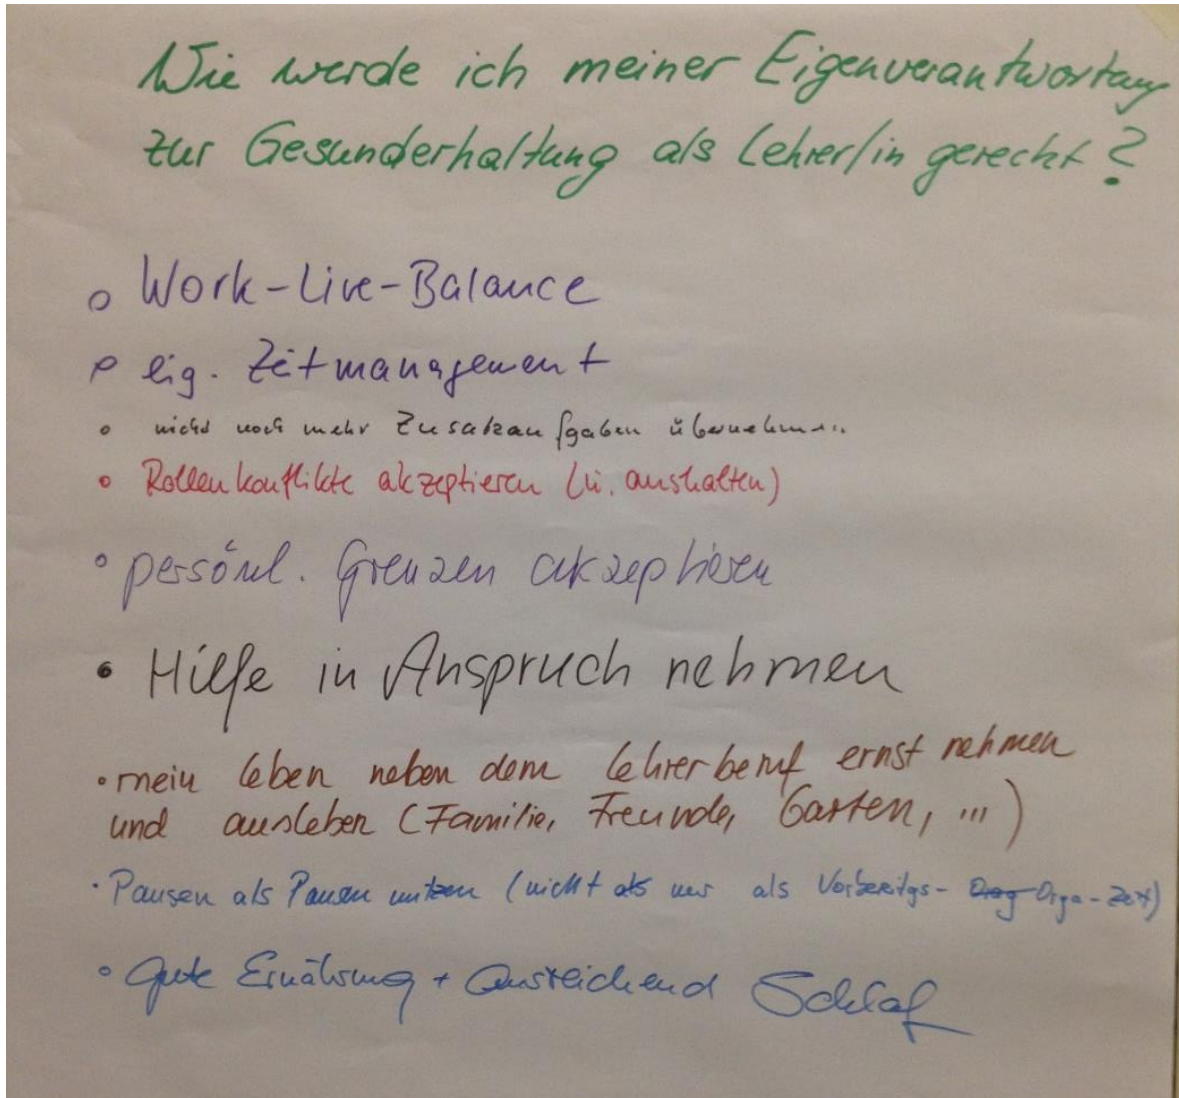 Wie werde ich meiner Eigenverantwortung
zur Gesunderhaltung als Lehrer/in gerecht?
o Work-Live-Balance
o eig. Zeitmanagement
o nicht noch mehr Zusatzaufgaben übernehmen
o Rollenkonflikte akzeptieren (u. aushalten)
o persönl. Grenzen akzeptieren
• Hilfe in Anspruch nehmen
• mein Leben neben dem Lehrerberuf ernst nehmen
und ausleben (Familie, Freunde, Garten, ...)
• Pausen als Pausen nutzen (nicht nur als Vorbereitgs- Orga-Zeit)
o gute Ernährung + ausreichend Schlaf